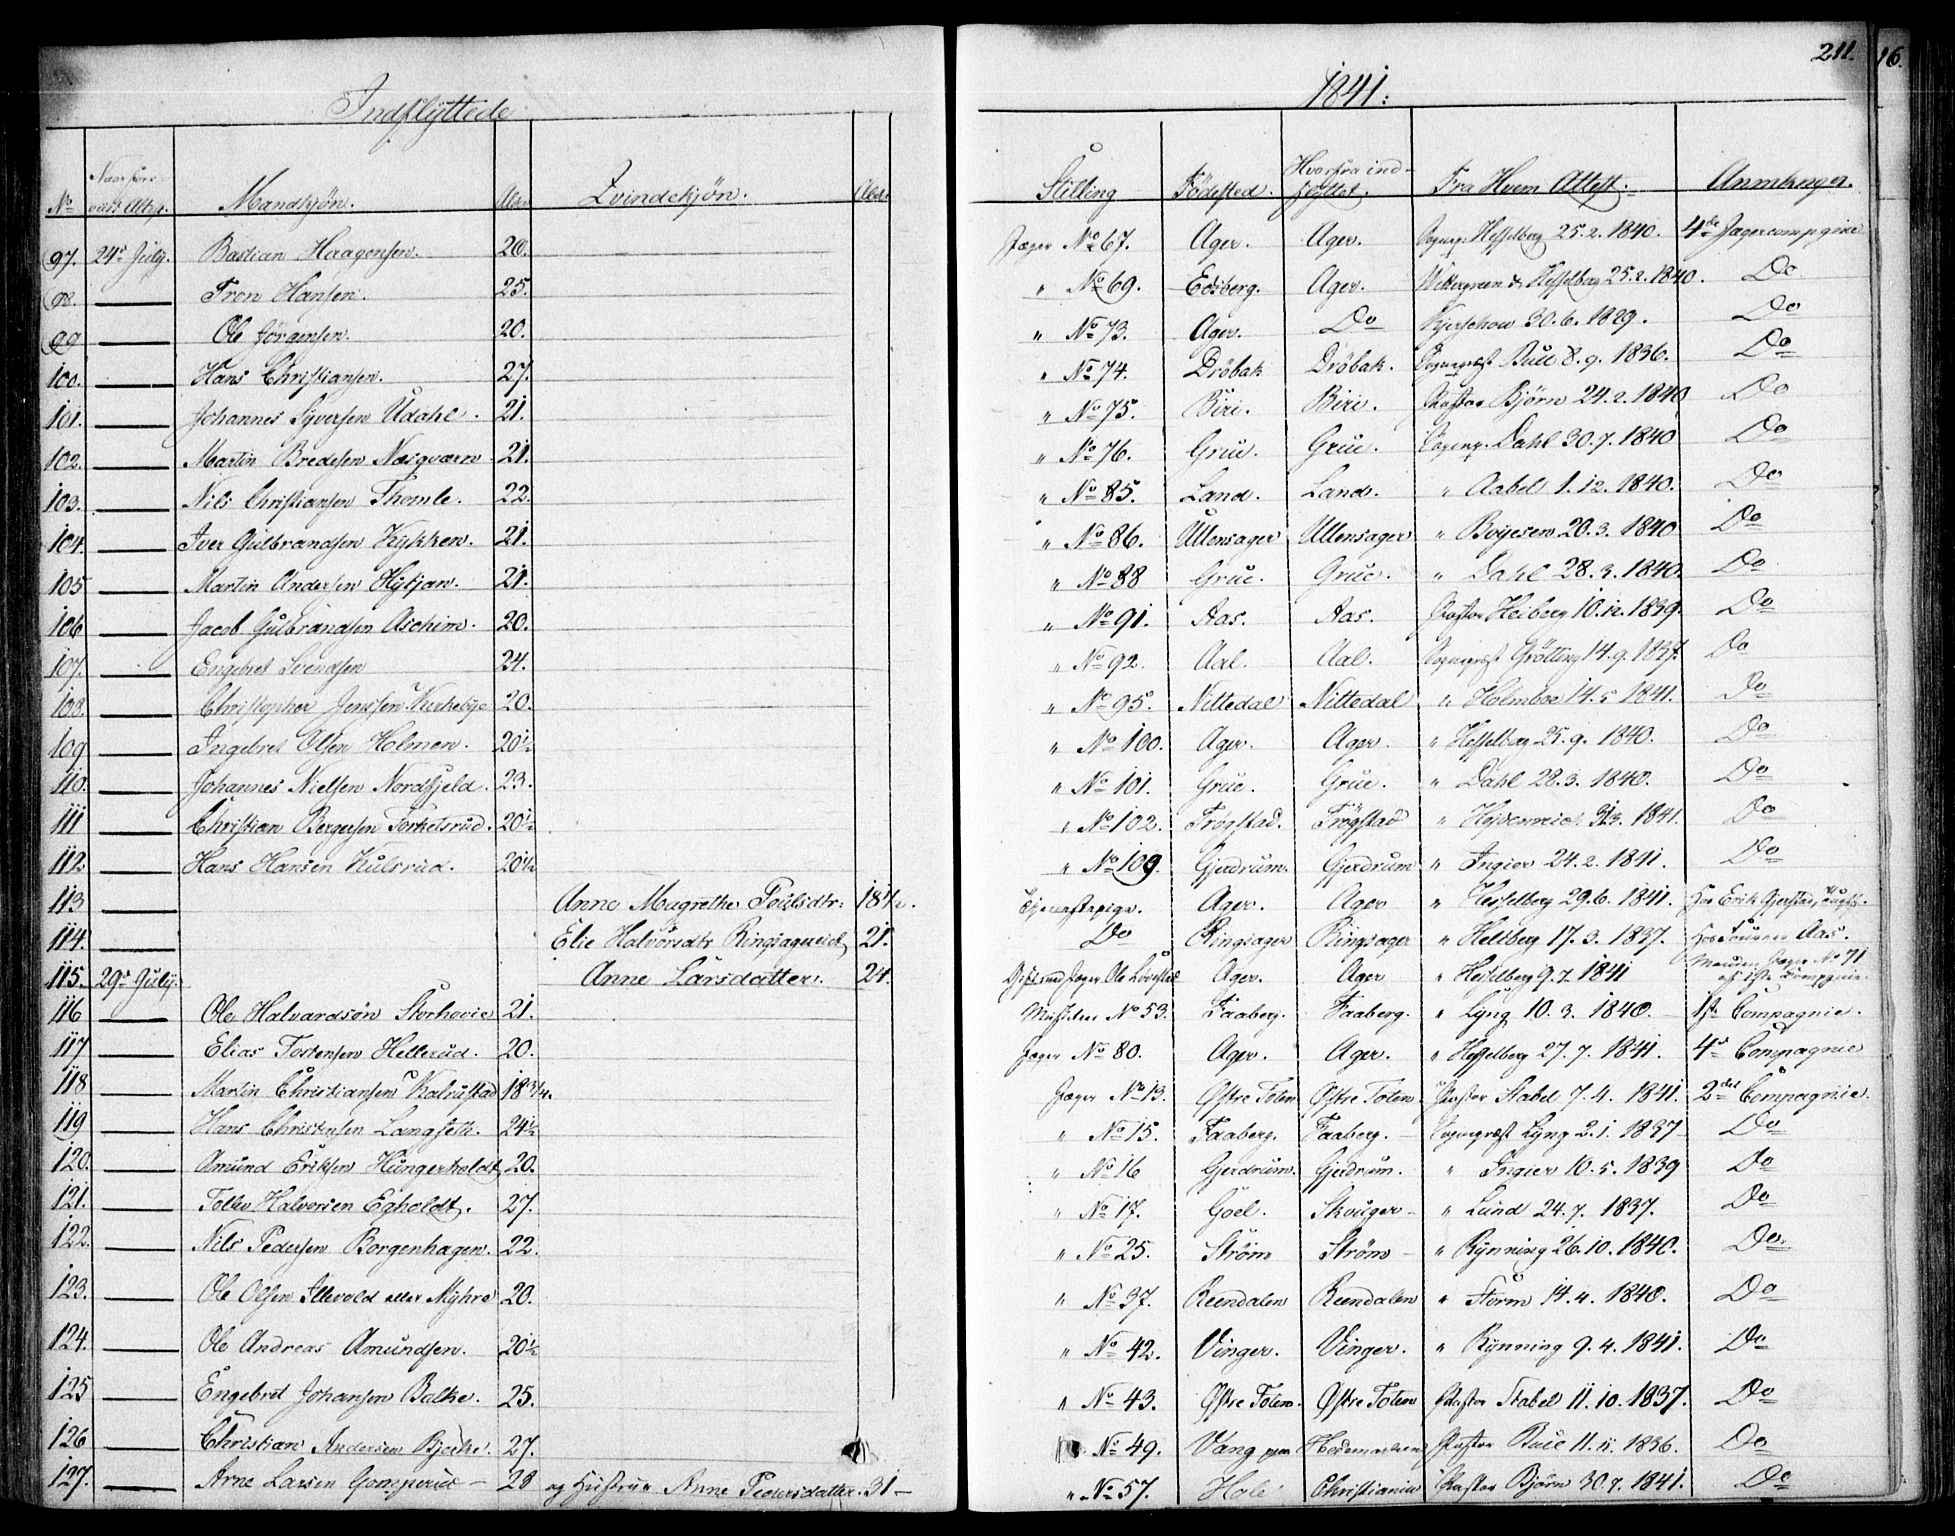 211. 16.
Indflyttede 1841.
No Mandkjön. Alder Qvindekjön. Alder Stilling Födested. Hvorfra indflyttet. Fra Hvem Attest. Anmknger.
97. 24de July. Bastian Haagensen. 20. Jæger No 67. Ager. Ager. Hesselberg 25.2.1840. 4de Jagercompgnie
98. Tron Hansen. 25. " No 69. Edsberg. Ager. Hesselberg 25.2.1840. Do
99 Ole Jörgensen. 20. " No 73. Ager. Do Kjerschow 30.6.1829. Do
100. Hans Christiansen. 27. " No 74. Dröbak Dröbak. Sogneprest Bull 8.9.1836. Do
101. Johannes Syversen Udahl. 21. " No 75. Biri. Biri. Pastor Björn 24.2.1840 Do
102. Martin Bredesen Næsqværn 21. " No 76. Grue. Grue. Sognep. Dahl 30.7.1840 Do
103. Nils Christiansen Thomle. 22. " No 85. Land. Land. " Aabel 1.12.1840. Do
104. Iver Gulbrandsen Kykken. 21. " No 86. Ullensager Ullensager " Boyesen 20.3.1840 Do
105 Martin Andersen Hytjan. 21. " No 88 Grue. Grue. " Dahl 28.3.1840. Do
106 Jacob Gulbrandsen Aschim. 20. " No 91. Aas. Aas. Pastor Heiberg 10.12.1839. Do
107. Engebret Svendsen 24. " No 92. Aal. Aal. Sogneprest Grötting 14.9.1837. Do
108. Christopher Jensen Kirkebye 20. " No 95. Nittedal Nittedal " Holmboe 14.5 1841. Do
109 Ingebret Olsen Holmen. 20½ " No 100. Ager. Ager. " Hesselberg 25.9.1840. Do
110. Johannes Nielsen Nordfjeld. 23. " No 101. Grue. Grue. " Dahl 28.3.1840. Do
111 Christian Bergersen Torkelsrud. 20½ " No 102. Trögstad. Trögstad " 1841. Do
112 Hans Hansen Kulsrud. 20½ " No 109. Gjerdrum. Gjerdrum " Ingier 24.2.1841. Do
113 Anne Magrethe Poulsdtr: 18½. Tjenestepige. Ager. Ager " Hesselberg 29.6.1841. Hos Erik Gjerstad,
114. Elie Halvorsdtr Ringsagereie 21. Do Ringsager Ringsager " Hellberg 17.3.1837. Hos Aas.
115. 29de July. Anne Larsdatter. 24. Gift med Jæger Ole Ager. Ager " Hesselberg 9.7.1841 Manden Jæger No 71 af 1ste Compgnie.
116 Ole Halvardsön Storhovie 21. No 53. Faaberg. Faaberg. " Lyng 10.3.1840. 1ste Compagnie.
117 Elias Torstensen Hellerud. 20. Jæger No 80. Ager. Ager. " Hesselberg 27.7.1841. 4de Compagnie
118 Martin Christiansen Kalrustad 18¾. Jæger No 13. Østre Toten Østre Toten Pastor Stabel 7.4.1841. 2det Compagnie.
119 Hans Christensen Langseth. 24½ " No 15. Faaberg. Faaberg. Sogneprest Lyng 2.1.1837 Do
120. Amund Eriksen Hungerholdt 20. " No 16 Gjerdrum. Gjerdrum. " Ingier 10.5.1839 Do
121. Tollev Halvorsen Egholdt. 27. " No 17. Goel. Skouger " Lund 24.7.1837. Do
122. Nils Pedersen Borgenhagen. 22. " No 25. Ström Ström " Rynning 26.10.1840. Do.
123. Ole Olsen Illevold eller Myhre 20. " No 37. Reendalen Reendalen " Storm 14.4.1840. Do
124. Ole Andreas Amundsen. 20½ " No 42. Vinger. Vinger. " Rynning 9.4.1841. Do
125 Engebret Johansen Balke. 25. " No 43. Østre Toten. Østre Toten Pastor Stabel 11.10.1837. Do
126 Christian Andersen Bjerke. 27. No 49. Vang paa Hedemarken Pastor Bull 11.11.1836. Do
127. Arne Larsen 28 og Hustrue Anne Pedersdatter. 31 " No 57. Hole Christiania Pastor Björn 30.7.1841. Do